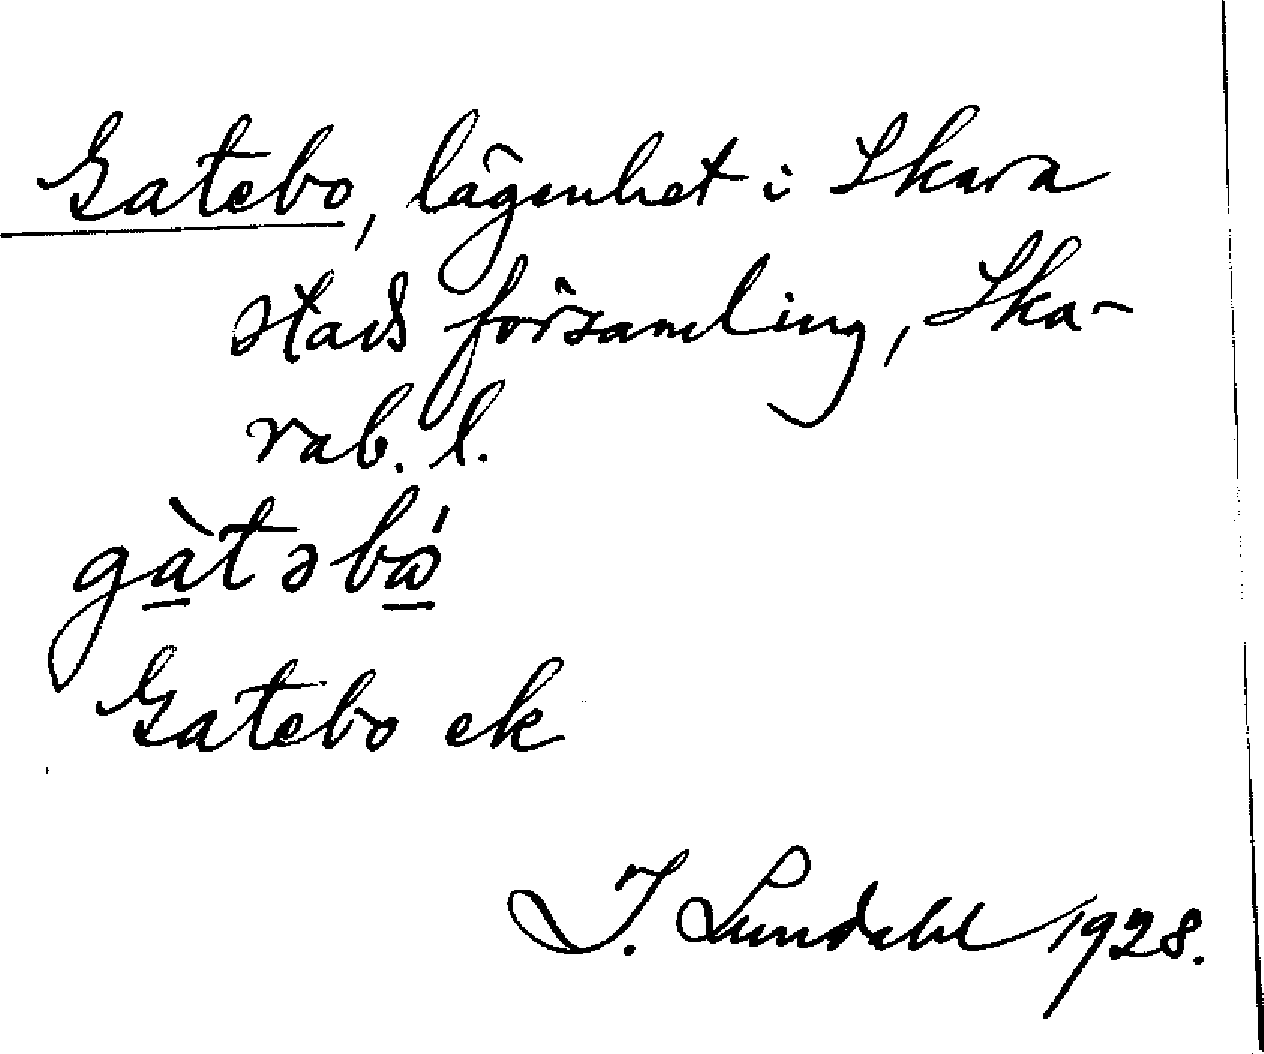 Gatebo, lägenhet i Skara
stads församling, Ska-
rab. l.
gàtəbɷ́
Gatebo ek
I. Lundahl 1928.